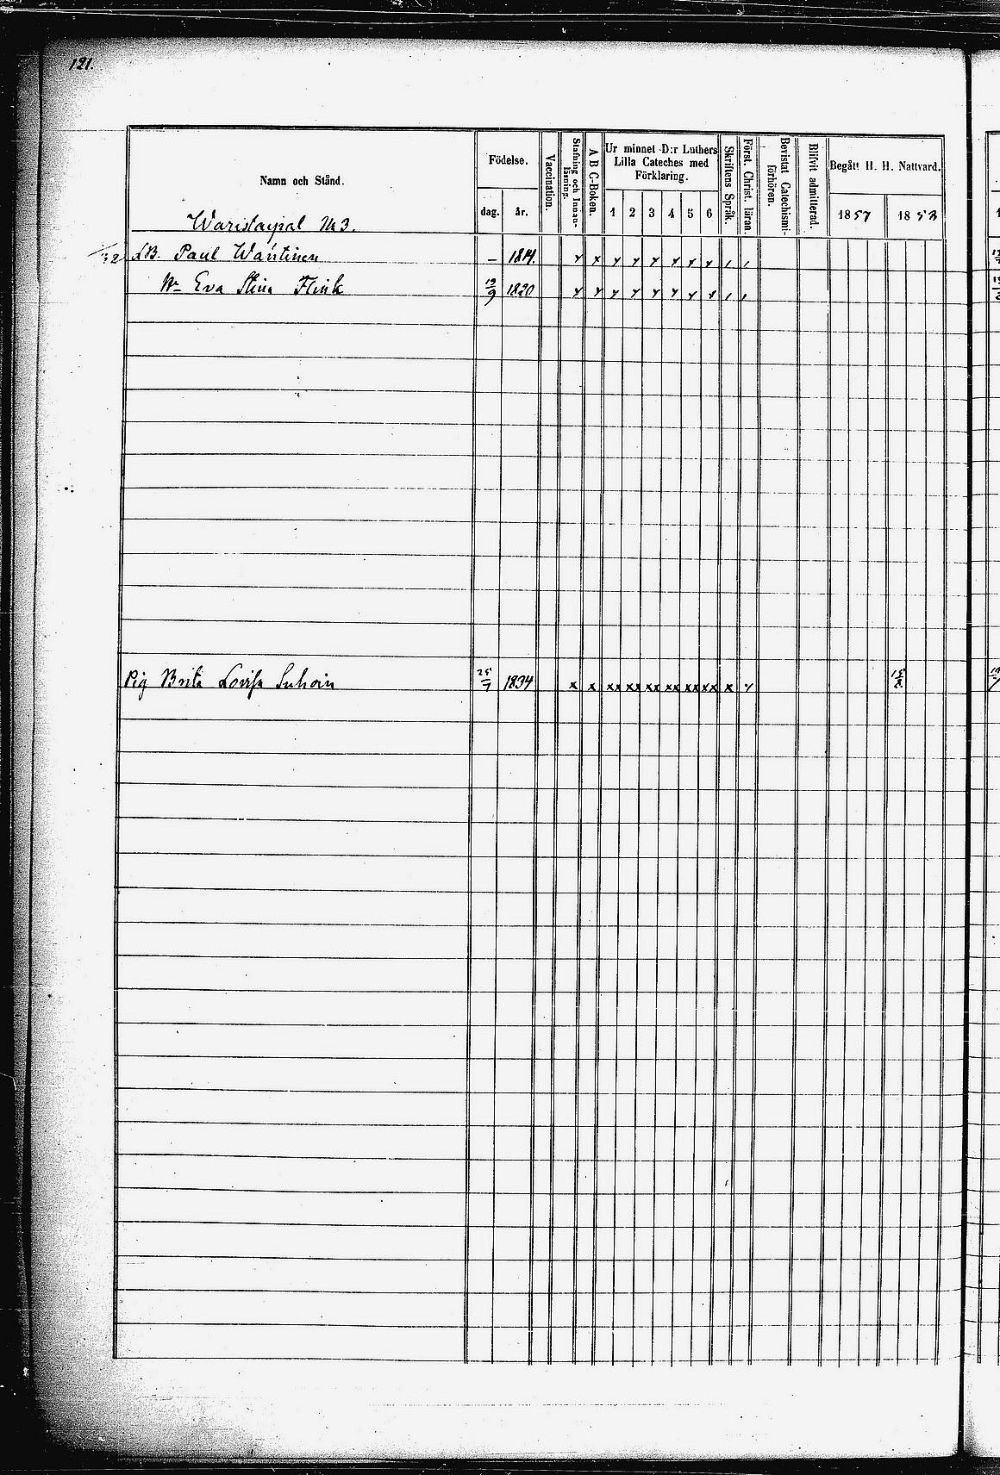 121.
Namn och Stånd.
Födelse.
dag. år.
Vaccination.
Stafning och Innanläsning.
A B C-Boken.
Ur minnet D:r Luthers Lilla Cateches med Förklaring.
1 2 3 4 5 6
Skriftens Språk.
Först. Christ. läran.
Bevistat Catechismiförhören.
Blifvit admitterad.
Begått H. H. Nattvard.
1857 1858
Warislaypal No 3.
Paul Wäntinen – 1814. x x x x x x x x , ,
Eva Stina Flink 19/9 1820 x x x x x x x x , ,
Pig Brita Lovisa Suhoin 25/7 1834 x x xx xx xx xx xx xx x x 15/8